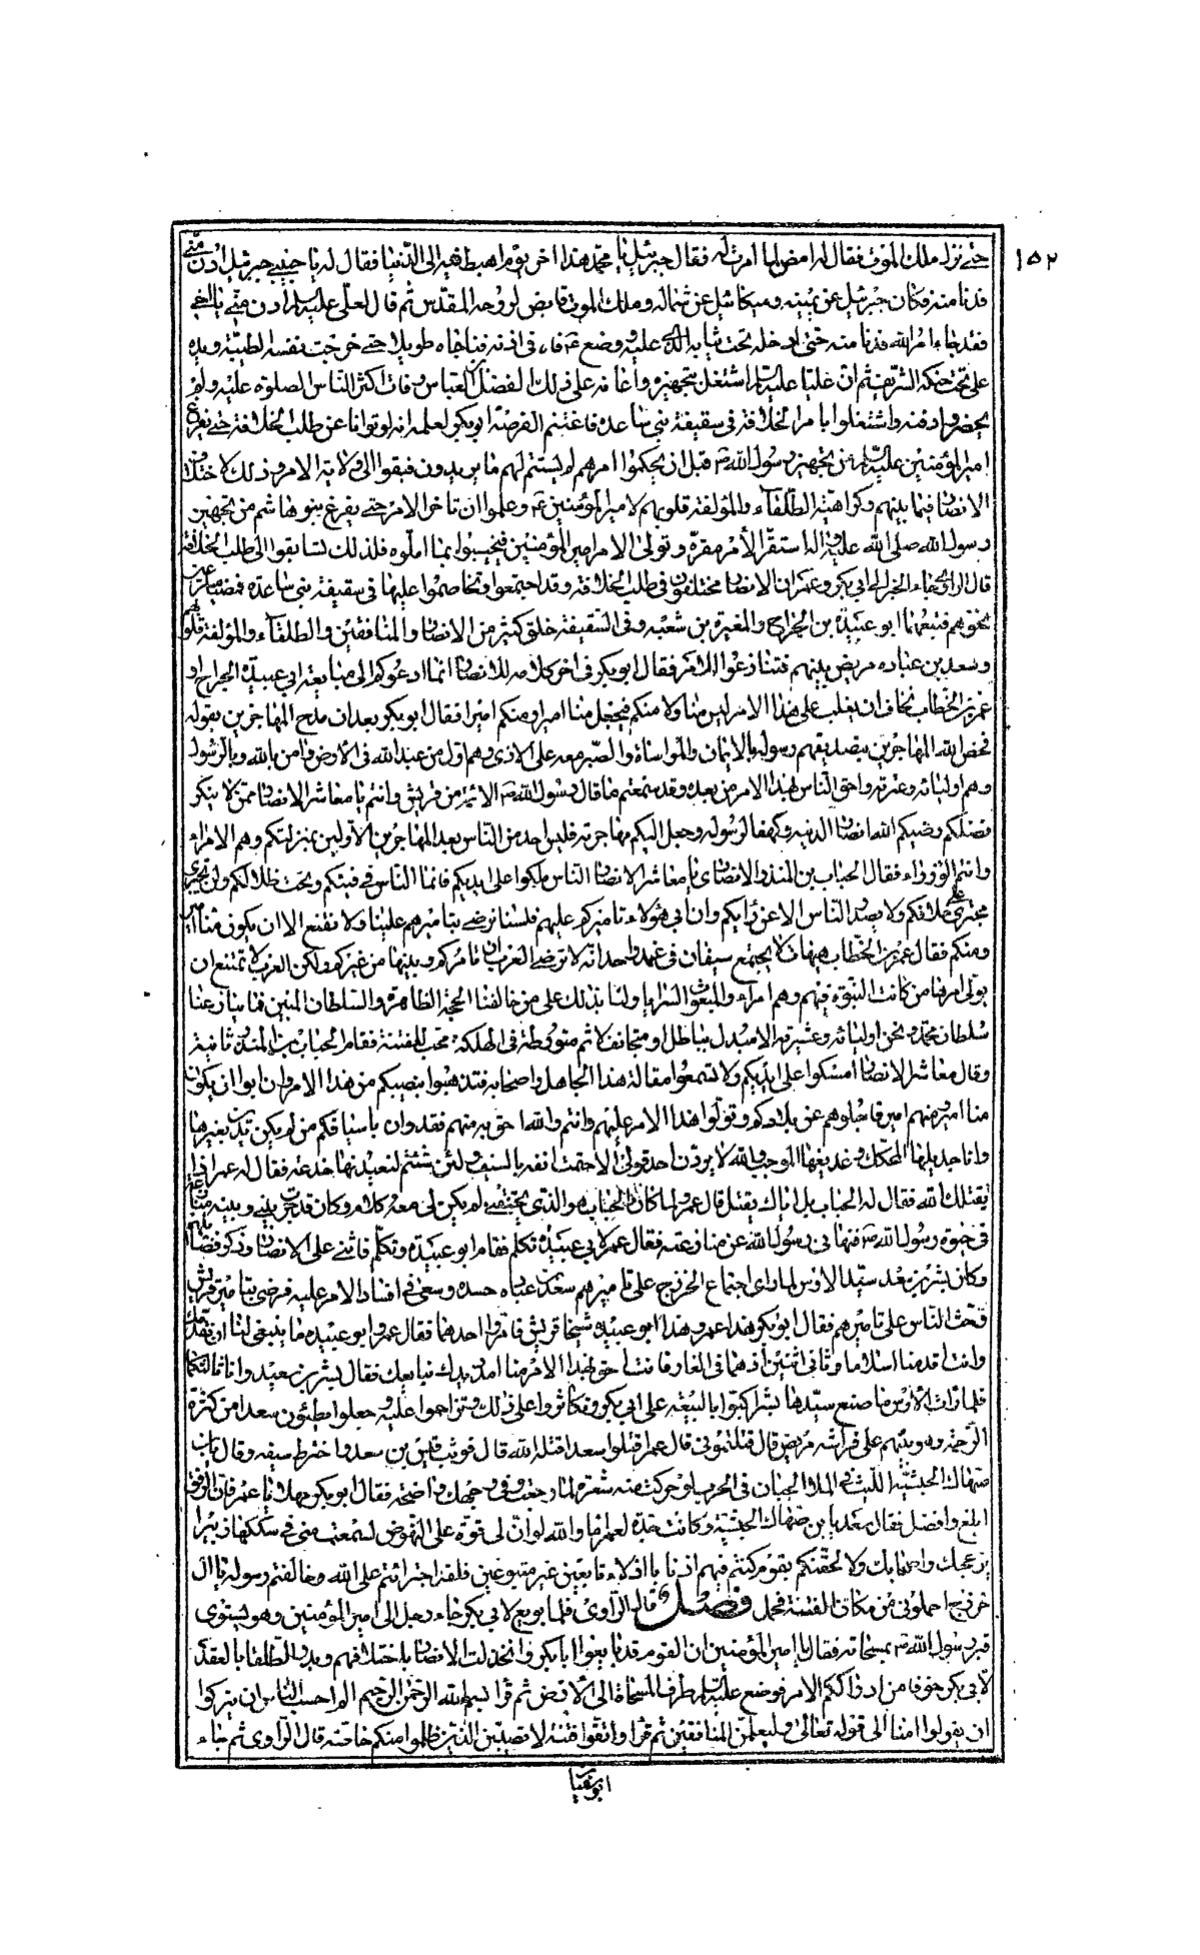 ١٥٢
حتى نزل ملك الموت فقال له امض لما امرت له فقال جبرئيل يا محمد هذا اخر يوم اهبط فيه الى الدنيا فقال له يا حبيبى جبرئيل ادن منى
فدنا منه فكان جبرئيل عن يمينه وميكائيل عن شماله وملك الموت قابض لروحه المقدس ثم قال لعلى عليه السلم ادن منى يا اخى
فقد جاء امر الله فدنا منه حتى ادخله تحت ثيابه الذى عليه ووضع فاه فى اذنه فناجاه طويلا حتى خرجت نفسه الطيبة ويد
على تحت حنكه الشريف ثم ان عليا عليه السلم اشتغل بتجهيزه واعانه على ذلك الفضل بن العباس وفات اكثر الناس الصلوة عليه ولم
يحضروا دفنه واشتغلوا بامر الخلافة فى سقيفة بنى ساعدة فاغتنم الفرصة ابو بكر لعلمه انه لو توانا عن طلب الخلافة حتى يفرغ
امير المؤمنين عليه السلم من تجهيز رسول الله ص قبل ان يحكموا امرهم لم يستتم لهم ما يريدون فبقوا الى ولاية الامر وذلك لاختلاف
الانصار فيما بينهم وكراهية الطلقاء والمؤلفة قلوبهم لامير المؤمنين ع وعلموا ان تاخر الامر حتى يفرغ بنو هاشم من تجهيز
رسول الله صلى الله عليه واله استقر الامر مقره وتولى الامر امير المؤمنين فيخيبوا بما املوه فلذلك تسابقوا الى طلب الخلافة
قال الراوى فجاء الخبر الى ابى بكر وعمر ان الانصار مختلفون فى طلب الخلافة وقد اجتمعوا وتخاصموا عليها فى سقيفة بنى ساعده فمضيا مسرعين
نحوهم فتبعهما ابو عبيدة بن الجراح والمغيرة بن شعبه وفى السقيفة خلق كثير من الانصار والمنافقين والطلقاء والمؤلفة قلوبهم
وسعد بن عباده مريض بينهم فتنازعوا الامر فقال ابو بكر فى اخر كلامه للانصار انما ادعوكم الى مبايعة ابى عبيدة الجراح او
عمر بن الخطاب نخاف ان يغلب على هذا الامر ليس منا ولا منكم فيجعل منا امير ومنكم امير فقال ابو بكر بعد ان مدح المهاجرين بقوله
فخص الله المهاجرين بتصديقهم رسوله والايمان والمواساة والصبر معه على الاذى وهم اول من عبد الله فى الارض وامن بالله وبالرسول
وهم اوليائه وعترته واحق الناس بهذا الامر من بعده وقد سمعتم ما قال رسول الله ص الائمة من قريش وانتم يا معاشر الانصار ممن لا ينكر
فضلكم رضيكم الله انصارا لدينه وكهفا لرسوله وجعل اليكم مهاجرته فليس احد من الناس بعد المهاجرين الاولين بمنزلتكم وهم الامراء
وانتم الوزراء فقال الحباب بن المنذر الانصارى يا معاشر الانصار الناس ملكوا على ايديكم فانما الناس فى فيئكم وتحت ظلالكم ولن يجترى
مجترى على خلافكم ولا يصدر الناس الا عن رايكم وان ابى هؤلاء تاميركم عليهم فلسنا نرضى بتاميرهم علينا ولا نقنع الا ان يكون منا امير
ومنكم فقال عمر بن الخطاب هيهات لا يجتمع سيفان فى غمد واحد انه لا ترضى العرب ان تامركم ونبيها من غيركم ولكن العرب لا تمتنع ان
تولى امرها من كانت النبوة فيهم وهم امراء ولنا بذلك على من خالفنا الحجة الظاهرة والسلطان المبين فمن ينازعنا
سلطان محمد ونحن اوليائه وعشيرته الا مبدل بباطل او متجانف لاثم متورطة فى الهلكة محب للفتنة فقام الحباب بن المنذر ثانية
وقال معاشر الانصار امسكوا على ايديكم ولا تسمعوا مقالة هذا الجاهل واصحابه فتذهبوا بنصيبكم من هذا الامر وان ابوا ان يكون
منا امير ومنهم امير فاجلوهم عن بلادكم وتولوا هذا الامر عليهم وانتم والله احق به منهم فقد دان باسيافكم من لم يكن يدين بغيرها
وانا جذيلها المحكك وعذيقها المرجب والله لا يردن احد قولى الا حتمت انفه بالسيف ولئن شئتم لنعيدنها جذعة فقال له عمر اذا
يقتلك الله فقال له الحباب بل اياك يقتل قال عمر ولما كان الحباب هو الذى يجيبنى لم يكن لى معه كلام وكان قد جرى بينى وبينه منازعة
فى حيوة رسول الله ص فنهانى رسول الله عن منازعته فقال عمر لابى عبيدة تكلم فقام ابو عبيدة وتكلم فاثنى على الانصار وذكر فضائلهم
وكان بشر بن سعد سيد الاوس لما راى اجتماع الخزرج على تاميرهم سعد بن عباده حسده وسعى فى افساد الامر عليه فرضى بتامير قريش
فحث الناس على تاميرهم فقال ابو بكر هذا عمر وهذا ابو عبيدة شيخا قريش فامروا احدهما فقال عمر وابو عبيده ما ينبغى لنا ان نقدمك
وانت اقدمنا اسلاما وثانى اثنين اذ هما فى الغار فانت احق بهذا الامر منا امدد يدك نبايعك فقال بشر بن سعيد وانا ثالثكما
فلما رات الاوس ما صنع سيدها بشر اكتبوا بالبيعة على ابى بكر وتكاثروا على ذلك وتزاحموا عليه وجعلوا يطئون سعدا من كثرة
الزحمة وهو بينهم على فراشه مريض قال قتلتمونى قال عمر اقتلوا سعدا قتله الله قال فوثب قيس بن سعد واخترط سيفه وقال يابن
صهاك الحبشية الليث فى الملاء الجبان فى الحرب لو حركت منه شعرة لما رجعت وفى وجهك واضحة فقال ابو بكر مهلا يا عمر فان الرفق
ابلغ وافضل فقال سعد يا بن صهاك الحبشية وكانت جدة لعمر اما والله لو ان لى قوة على النهوض لسمعت منى فى سككها زئيرا
يزعجك واصحابك ولا لحقتكم بقوم كنتم فيهم اذنابا اذلاء تابعين غير متبوعين فلقد اجترأتم على الله وخالفتم رسوله يا ال
خزرج احملونى من مكان الفتنة فحمل فصل قال الراوى فلما بويع لابى بكر جاء رجل الى امير المؤمنين وهو يستوى
قبر رسول الله ص بمسحاته فقال يا امير المؤمنين ان القوم قد بايعوا ابا بكر وانخذلت الانصار باختلافهم وبدر الطلقا بالعقد
لابى بكر خوفا من ادراككم الامر فوضع عليه السلم طرف المسحاة الى الارض ثم قرا بسم الله الرحمن الرحيم الم احسب الناس ان يتركوا
ان يقولوا امنا الى قوله تعالى وليعلمن المنافقين ثم قرأ واتقوا فتنة لا تصيبن الذين ظلموا منكم خاصة قال الراوى ثم جاء
ابو سفيا